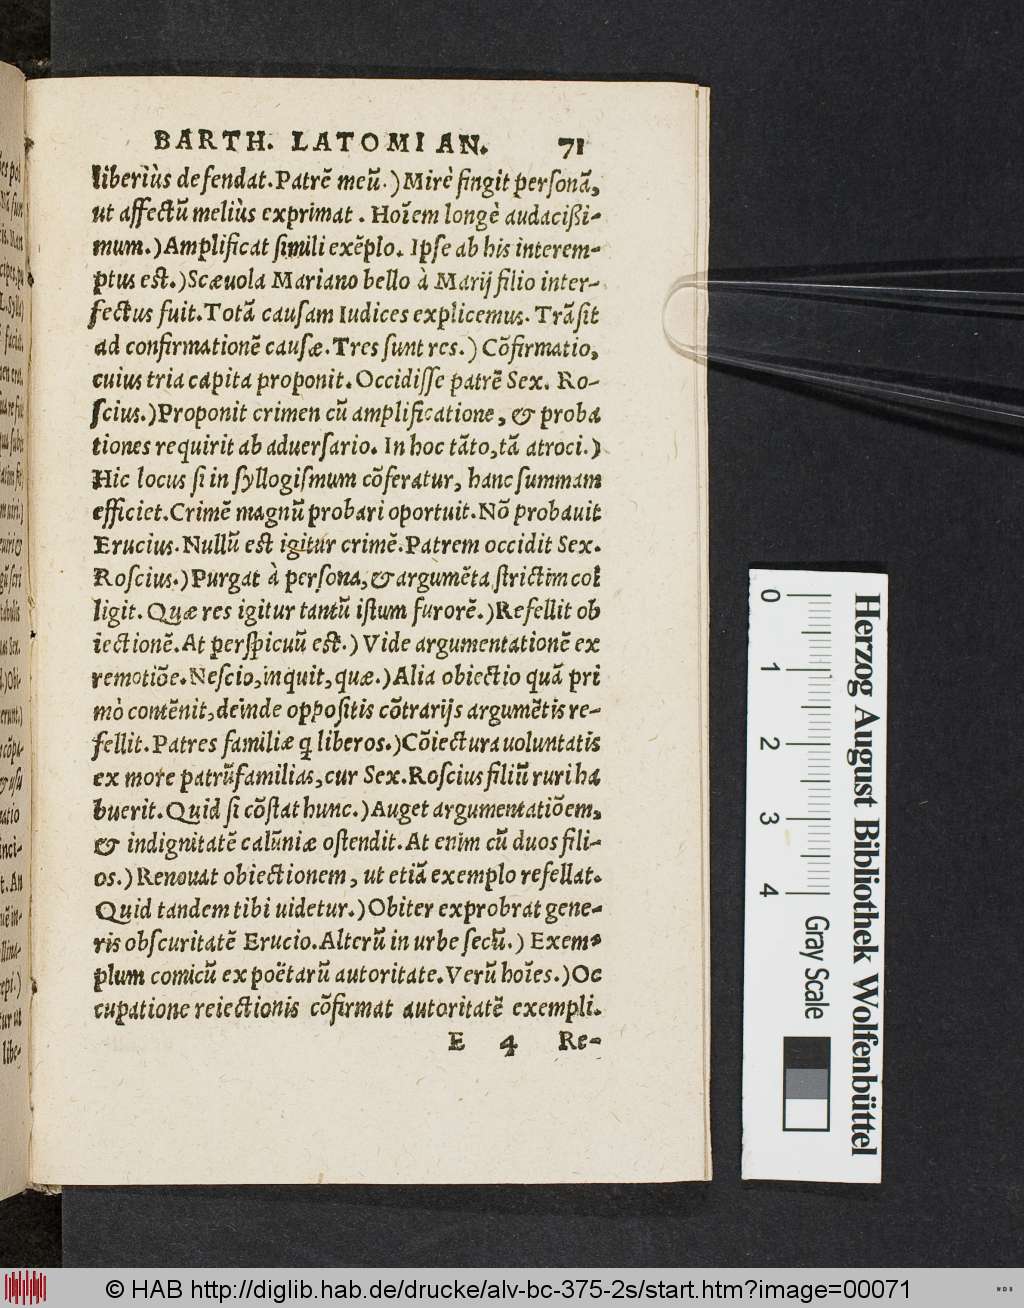 BARTH. LATOMI AN. 71
liberiùs defendat. Patrē meū.) Mirè fingit personā,
ut affectū meliùs exprimat. Hoīem longè audacißi-
mum.) Amplificat simili exēplo. Ipse ab his interem-
ptus est.) Scæuola Mariano bello à Marij filio inter-
fectus fuit. Totā causam Iudices explicemus. Trāsit
ad confirmationē causæ. Tres sunt res.) Cōfirmatio,
cuius tria capita proponit. Occidisse patrē Sex. Ro-
scius.) Proponit crimen cū amplificatione, & proba
tiones requirit ab aduersario. In hoc tāto, tā atroci.)
Hic locus si in syllogismum cōferatur, hanc summam
efficiet. Crimē magnū probari oportuit. Nō probauit
Erucius. Nullū est igitur crimē. Patrem occidit Sex.
Roscius.) Purgat à persona, & argumēta strictim col
ligit. Quæ res igitur tantū istum furorē.) Refellit ob
iectionē. At perspicuū est.) Vide argumentationē ex
remotiōe. Nescio, inquit, quæ.) Alia obiectio quā pri
mò contēnit, deinde oppositis cōtrarijs argumētis re-
fellit. Patres familiæ q̨ liberos.) Cōiectura uoluntatis
ex more patrūfamilias, cur Sex. Roscius filiū ruri ha
buerit. Quid si cōstat hunc.) Auget argumentatiōem,
& indignitatē calūniæ ostendit. At enim cū duos fili-
os.) Renouat obiectionem, ut etiā exemplo refellat.
Quid tandem tibi uidetur.) Obiter exprobrat gene-
ris obscuritatē Erucio. Alterū in urbe secū.) Exem-
plum comicū ex poëtarū autoritate. Verū hoīes.) Oc
cupatione reiectionis cōfirmat autoritatē exempli.
E 4 Re-
0 1 2 3 4 Gray Scale
Herzog August Bibliothek Wolfenbüttel
© HAB http://diglib.hab.de/drucke/alv-bc-375-2s/start.htm?image=00071